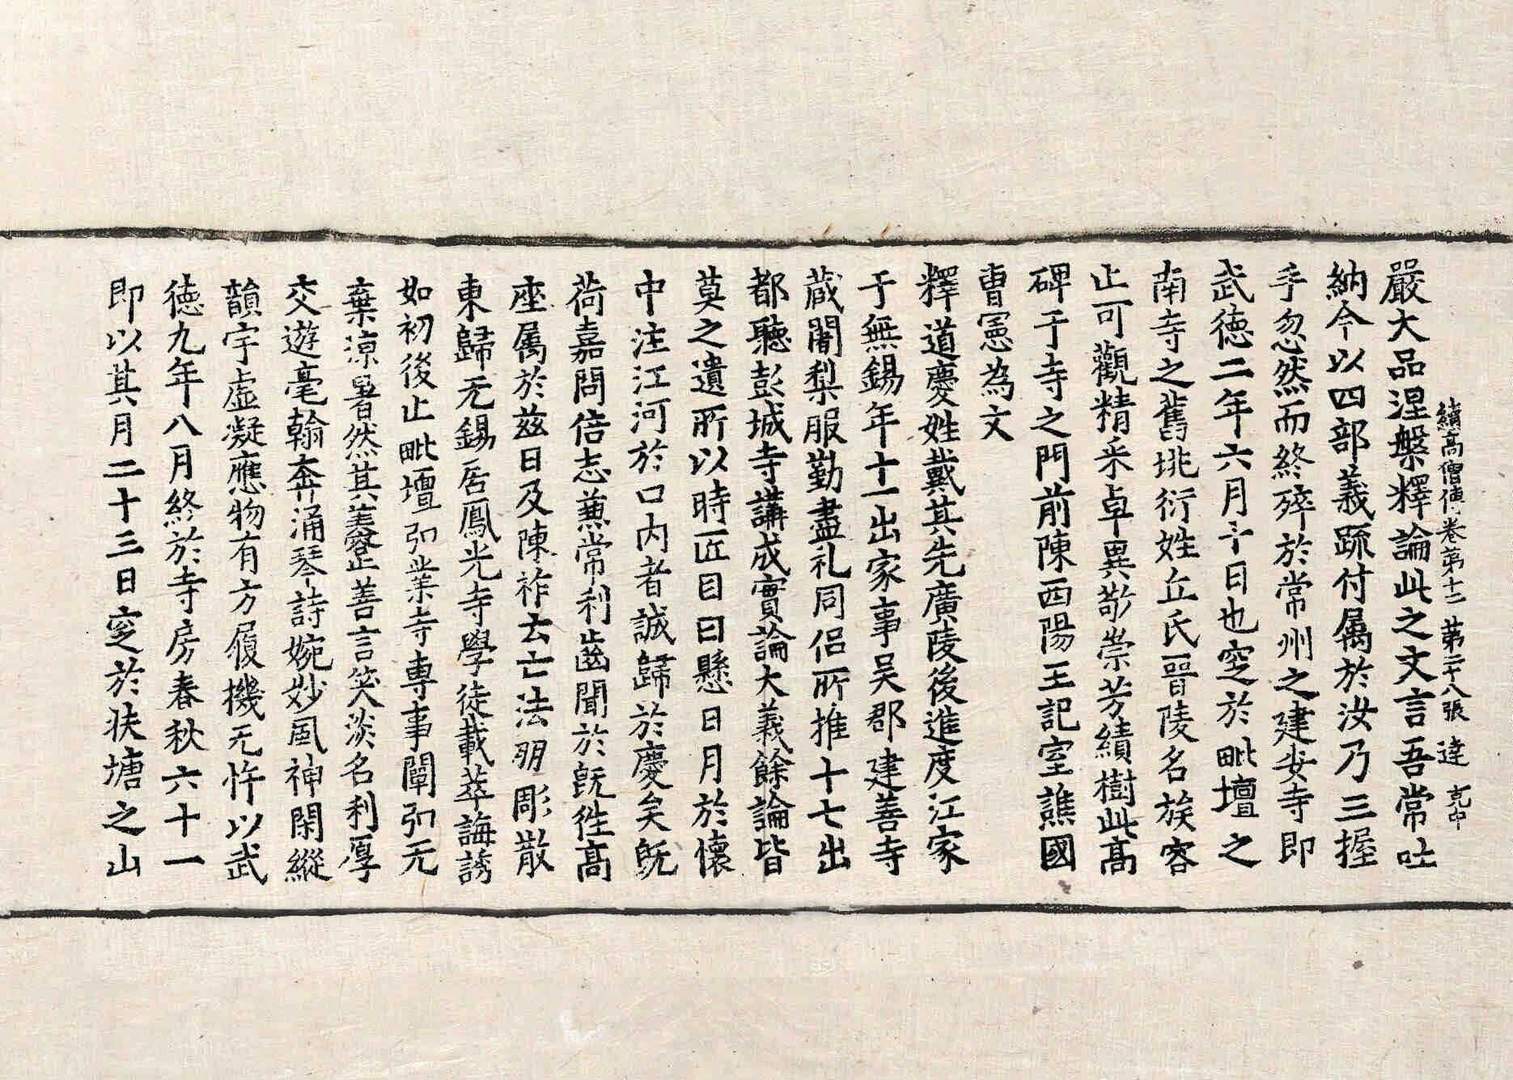 續高僧傳卷第十二 第二十八張 達
嚴大品涅槃釋論此之文言吾常吐
納今以四部義䟽付属於汝乃三握
手忽然而終殯於常州之建安寺即
武德二年六月十日也窆於毗壇之
南寺之舊垗衍姓丘氏晉陵名族容
止可觀精采卓異敬崇芳績樹此高
碑于寺之門前陳西陽王記室譙國
曹憲為文
釋道慶姓戴其先廣陵後進度江家
于無錫年十一出家事吴郡建善寺
藏闍梨服勤盡礼同侶所推十七出
都聽彭城寺講成實論大義餘論皆
莫之遺所以時匠目曰懸日月於懷
中注江河於口内者誠歸於慶矣既
荷嘉問倍志兼常利齒聞於既徃高
座属於茲日及陳祚云亡法朋彫散
東歸无錫居鳳光寺學徒載萃誨誘
如初後止毗壇弘業寺專事闡弘无
棄凉暑然其美容正善言笑淡名利厚
交遊毫翰奔涌琴詩婉妙風神閑縱
韻宇虚凝應物有方履機无忤以武
德九年八月終於寺房春秋六十一
即以其月二十三日窆於扶塘之山